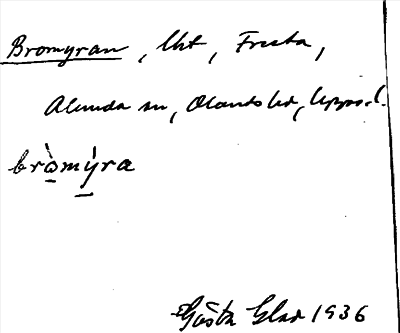 Bromyran, lht, Fresta,
Alunda sn, Olands hd, Upps. l.
bròmýra
Gösta Elar 1936